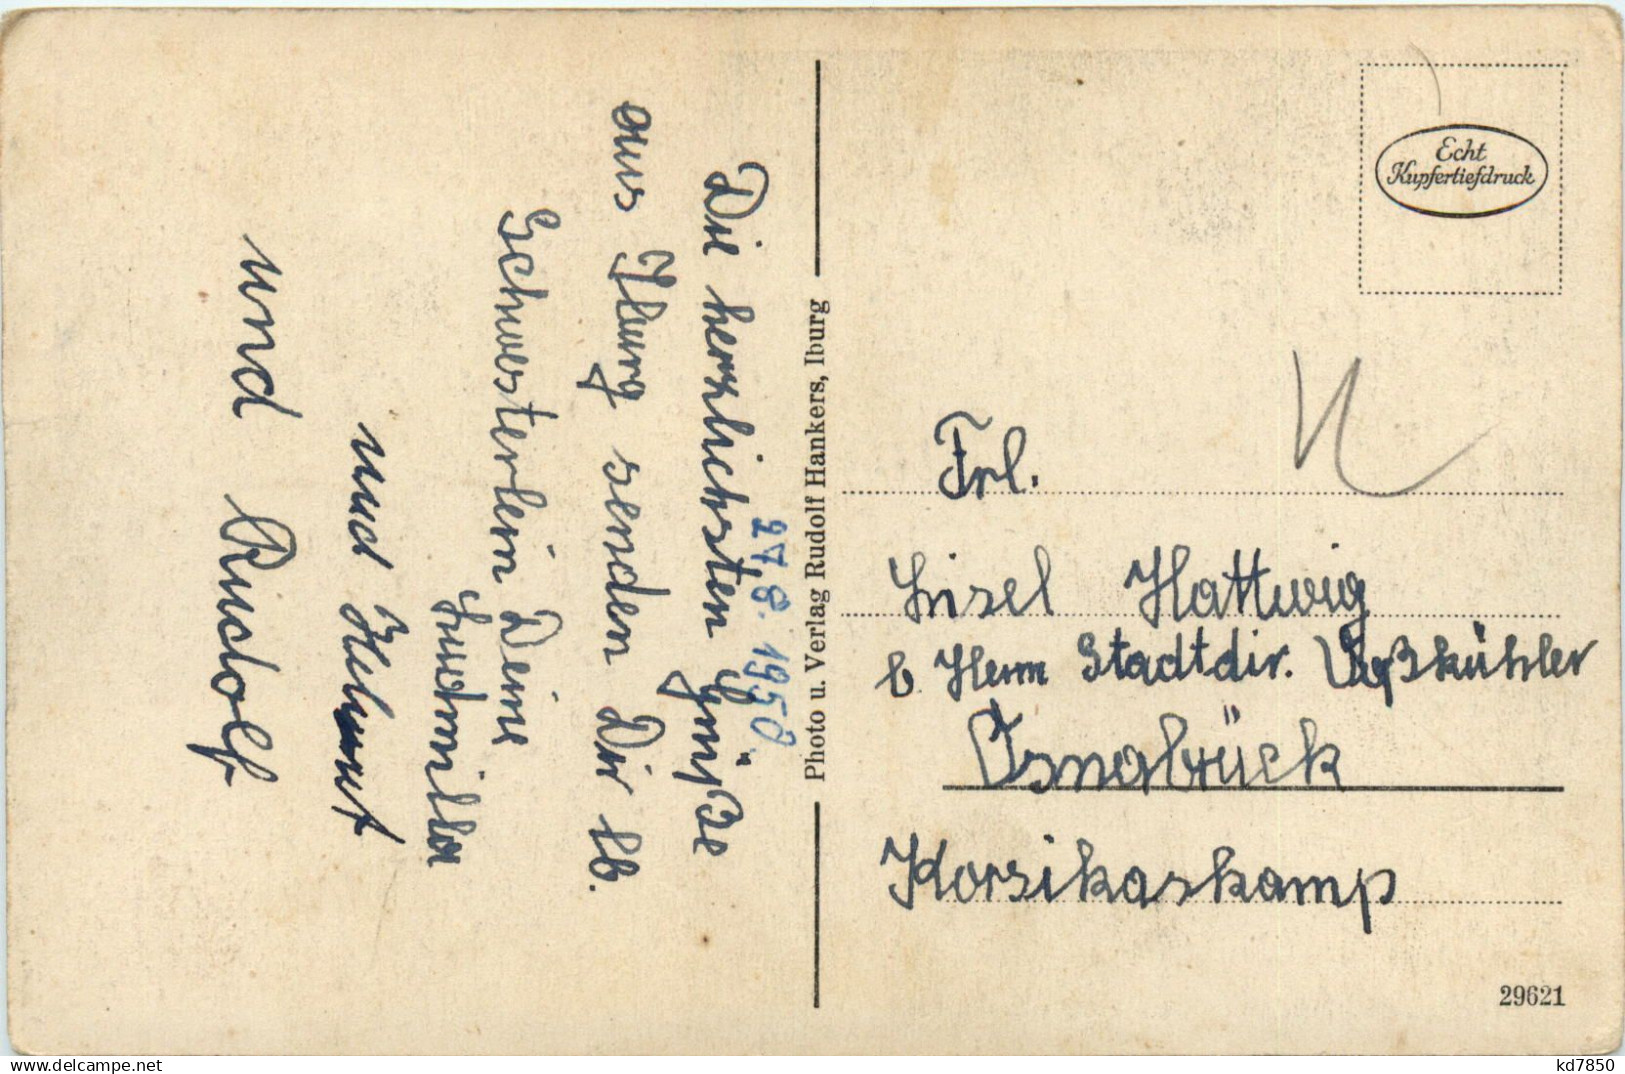 27.8.1950.
Die herzlichsten Grüße
aus Iburg senden Dir lb.
Schwesterlein Deine
Ludmilla
und Helmut
und Rudolf
Photo u. Verlag Rudolf Hankers, Iburg
Echt
Kupfertiefdruck
Frl.
Lisel Hattwig
b. Herrn Stadtdir. Voßkühler
Osnabrück
Korsikaskamp
29621
www.delcampe.net
kd7850